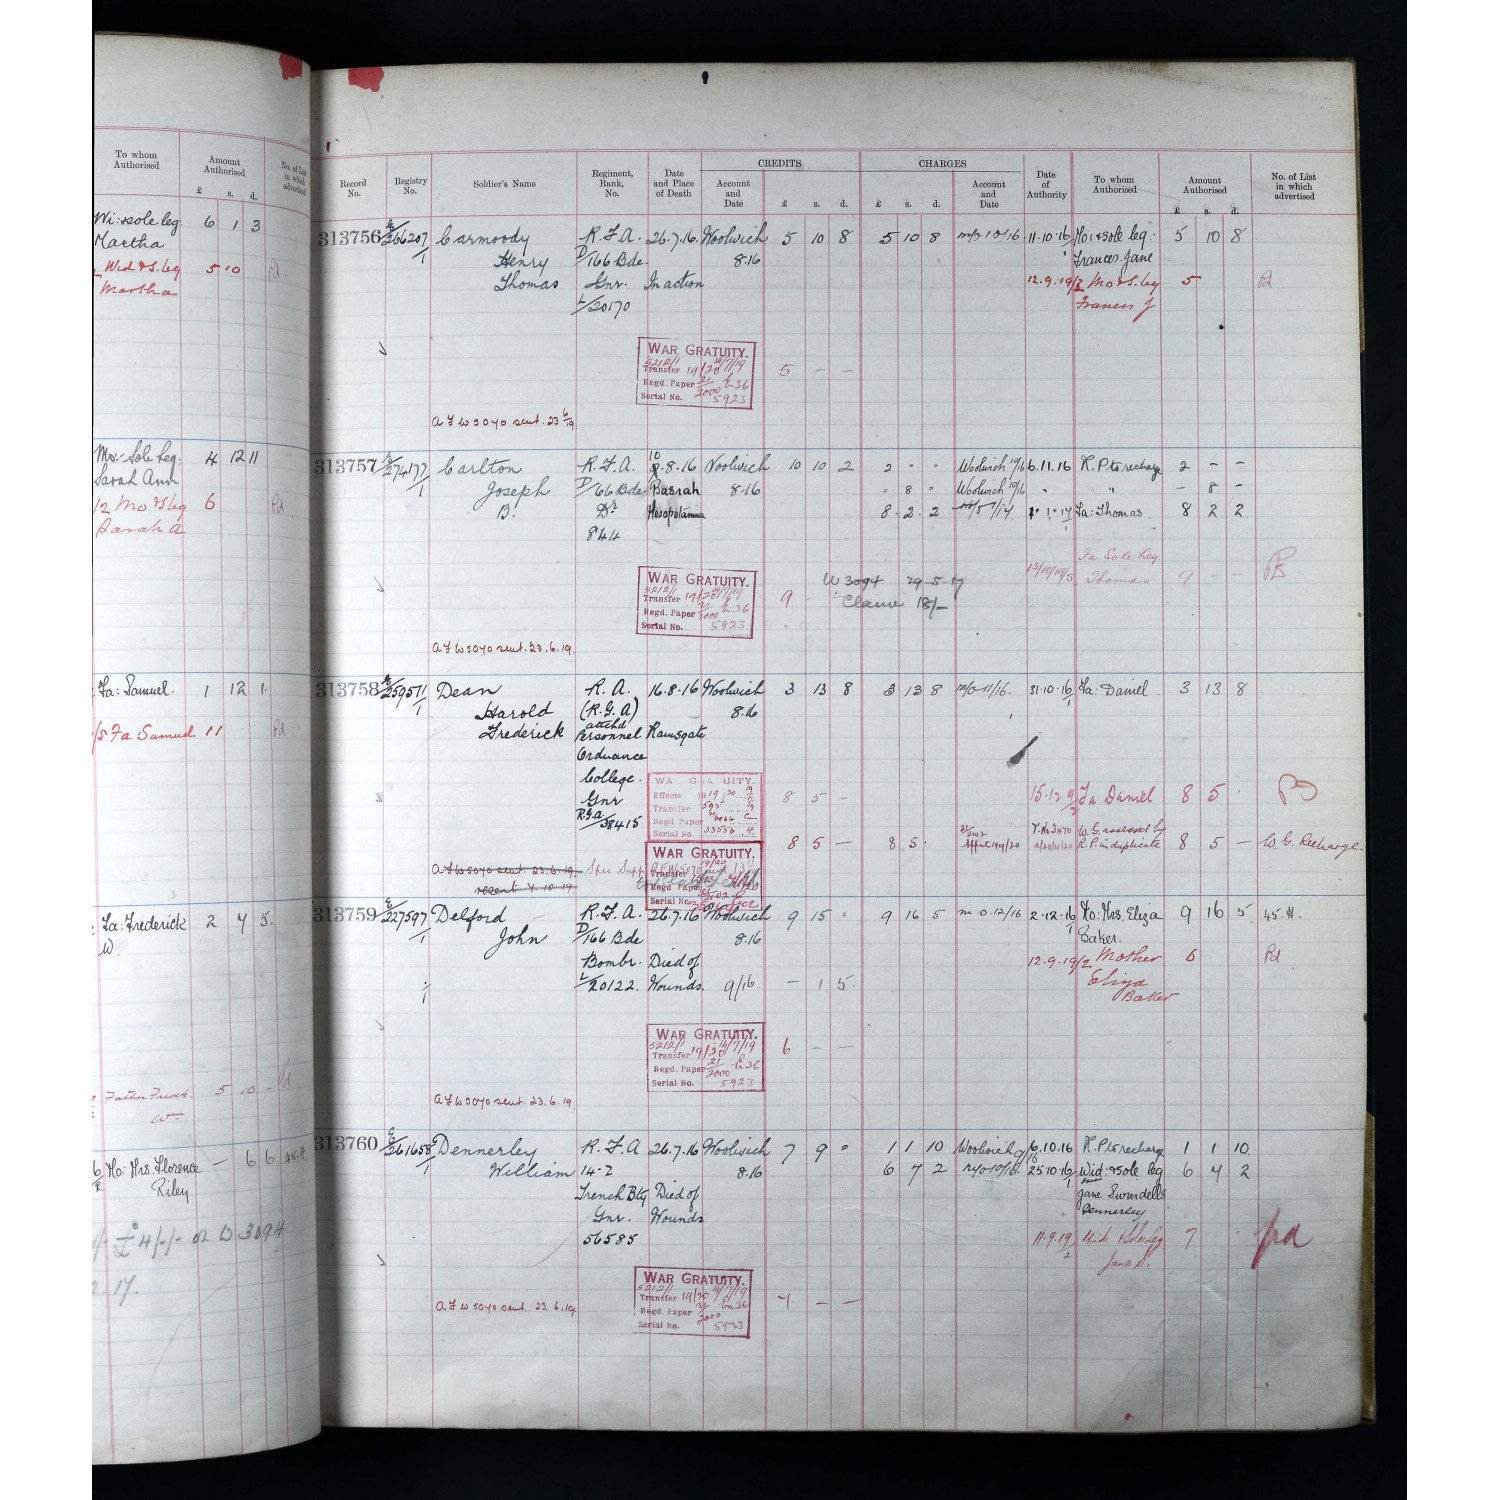 To whom
Authorised
Amount
Authorised
No. of List
in which
advertised
£ s. d.
Wi: & sole leg: 6 1 3
Martha
Wid & S. leg 5 10 Pd.
Martha
Mo: Sole Leg. 4 12 11
Sarah Ann
12 Mo & S leg 6 Pd
Sarah A
Fa: Samuel. 1 12 1.
/5 Fa Samuel 11 Pd
Fa: Frederick 2 4 5.
W.
Father Fredk. 5 10 -
Wm
Ho: Mrs. Florence - 6 6 45.H
Riley
£4/-/- on W 3094
17.
CREDITS CHARGES
Record
No.
Registry
No.
Soldier's Name
Regiment,
Rank,
No.
Date
and Place
of Death
Account
and
Date
£ s. d.
£ s. d.
Account
and
Date
Date
of
Authority
To whom
Authorised
Amount
Authorised
£ s. d.
No. of List
in which
advertised
313756 E/266207/1 Carmoody R.F.A. 26.7.16. Woolwich 5 10 8 5 10 8 m/o 10/16 11.10.16 Mo: & sole leg: 5 10 8
Henry D/166 Bde. 8.16 Frances Jane
Thomas Gnr. In action 12.9.19/2 Mo & S. leg 5 Pd
L/20170 Frances J
WAR GRATUITY.
5212/1 14/7/19
Transfer 19/20
Regd. Paper 21/2000 E36
Serial No. 5923
5 - -
A F W 5070 sent. 23 6/19.
313757 E/274177/1 Carlton R.F.A. 10.8.16 Woolwich 10 10 2 2 " " Woolwich 10/16 6.11.16 R.P. to recharge 2 - -
Joseph D/66 Bde Basrah 8.16 " 8 " Woolwich 10/16 " " - 8 -
B. Dr Mesopotamia 8 2 2 1.17 Fa: Thomas 8 2 2
844
Fa Sole Leg.
13/10/19/5 Thomas 9 - -
WAR GRATUITY.
5212/1 14/7/19
Transfer 19/20
Regd. Paper 21/2000 E36
Serial No. 5923
9 -
W 3094 29-5-17
Claim 18/-
A F W 5070 sent. 23.6.19.
313758 E/259571/1 Dean R.A. 16.8.16 Woolwich 3 13 8 3 13 8 m/o 11/16. 31.10.16/1 Fa: Daniel. 3 13 8
Harold (R.G.A) 8.16
Frederick attchd Ramsgate
Personnel
Ordnance
College.
Gnr
R.G.A/38415
WA GRA UITY.
Effects 1919/20
Transfer
Regd Paper
Serial No. 4.
8 5 - 15.12.9/2 Fa Daniel 8 5 .
8 5 - 8 5. W.G. assessed by 8 5 - W.G. Recharge.
R.P. in duplicate
WAR GRATUITY.
Transfer 19/20
Regd Paper
Serial No.
A F W 5070 sent 23.6.19. Spec Supp
resent 7.10.19
313759 E/227597/1 Delford R.F.A. 26.7.16 Woolwich 9 15 " 9 16 5 m.o.12/16 2.12.16/1 Mo: Mrs. Eliza 9 16 5. 45.H.
John D/166 Bde 8.16 Baker.
Bombr. Died of 12.9.19/2 Mother 6 Pd
L/20122. Wounds. 9/16 - 1 5. Eliza
Baker
WAR GRATUITY.
5212/1 14/7/19
Transfer 19/20
Regd. Paper 21/2000 E36
Serial No. 5923
6 - -
A F W 5070 sent. 23.6.19.
313760 E/261658/1 Dennerley R.F.A 26.7.16 Woolwich 7 9 " 1 1 10 Woolwich 9/16 6.10.16 R.P. to recharge 1 1 10.
William 14-2 8.16 6 7 2 25.10.16/1 Wid. & sole leg 6 4 2
Trench Bty Died of Jane Swindells
Gnr. Wounds Dennerley
56585 11.9.19/2 Wid. & Sole Leg 7 pd
Jane S.
WAR GRATUITY.
5212/1 14/7/19
Transfer 19/20
Regd. Paper 21/2000 E36
Serial No. 5923
7 - -
A F W 5070 sent. 23.6.19.